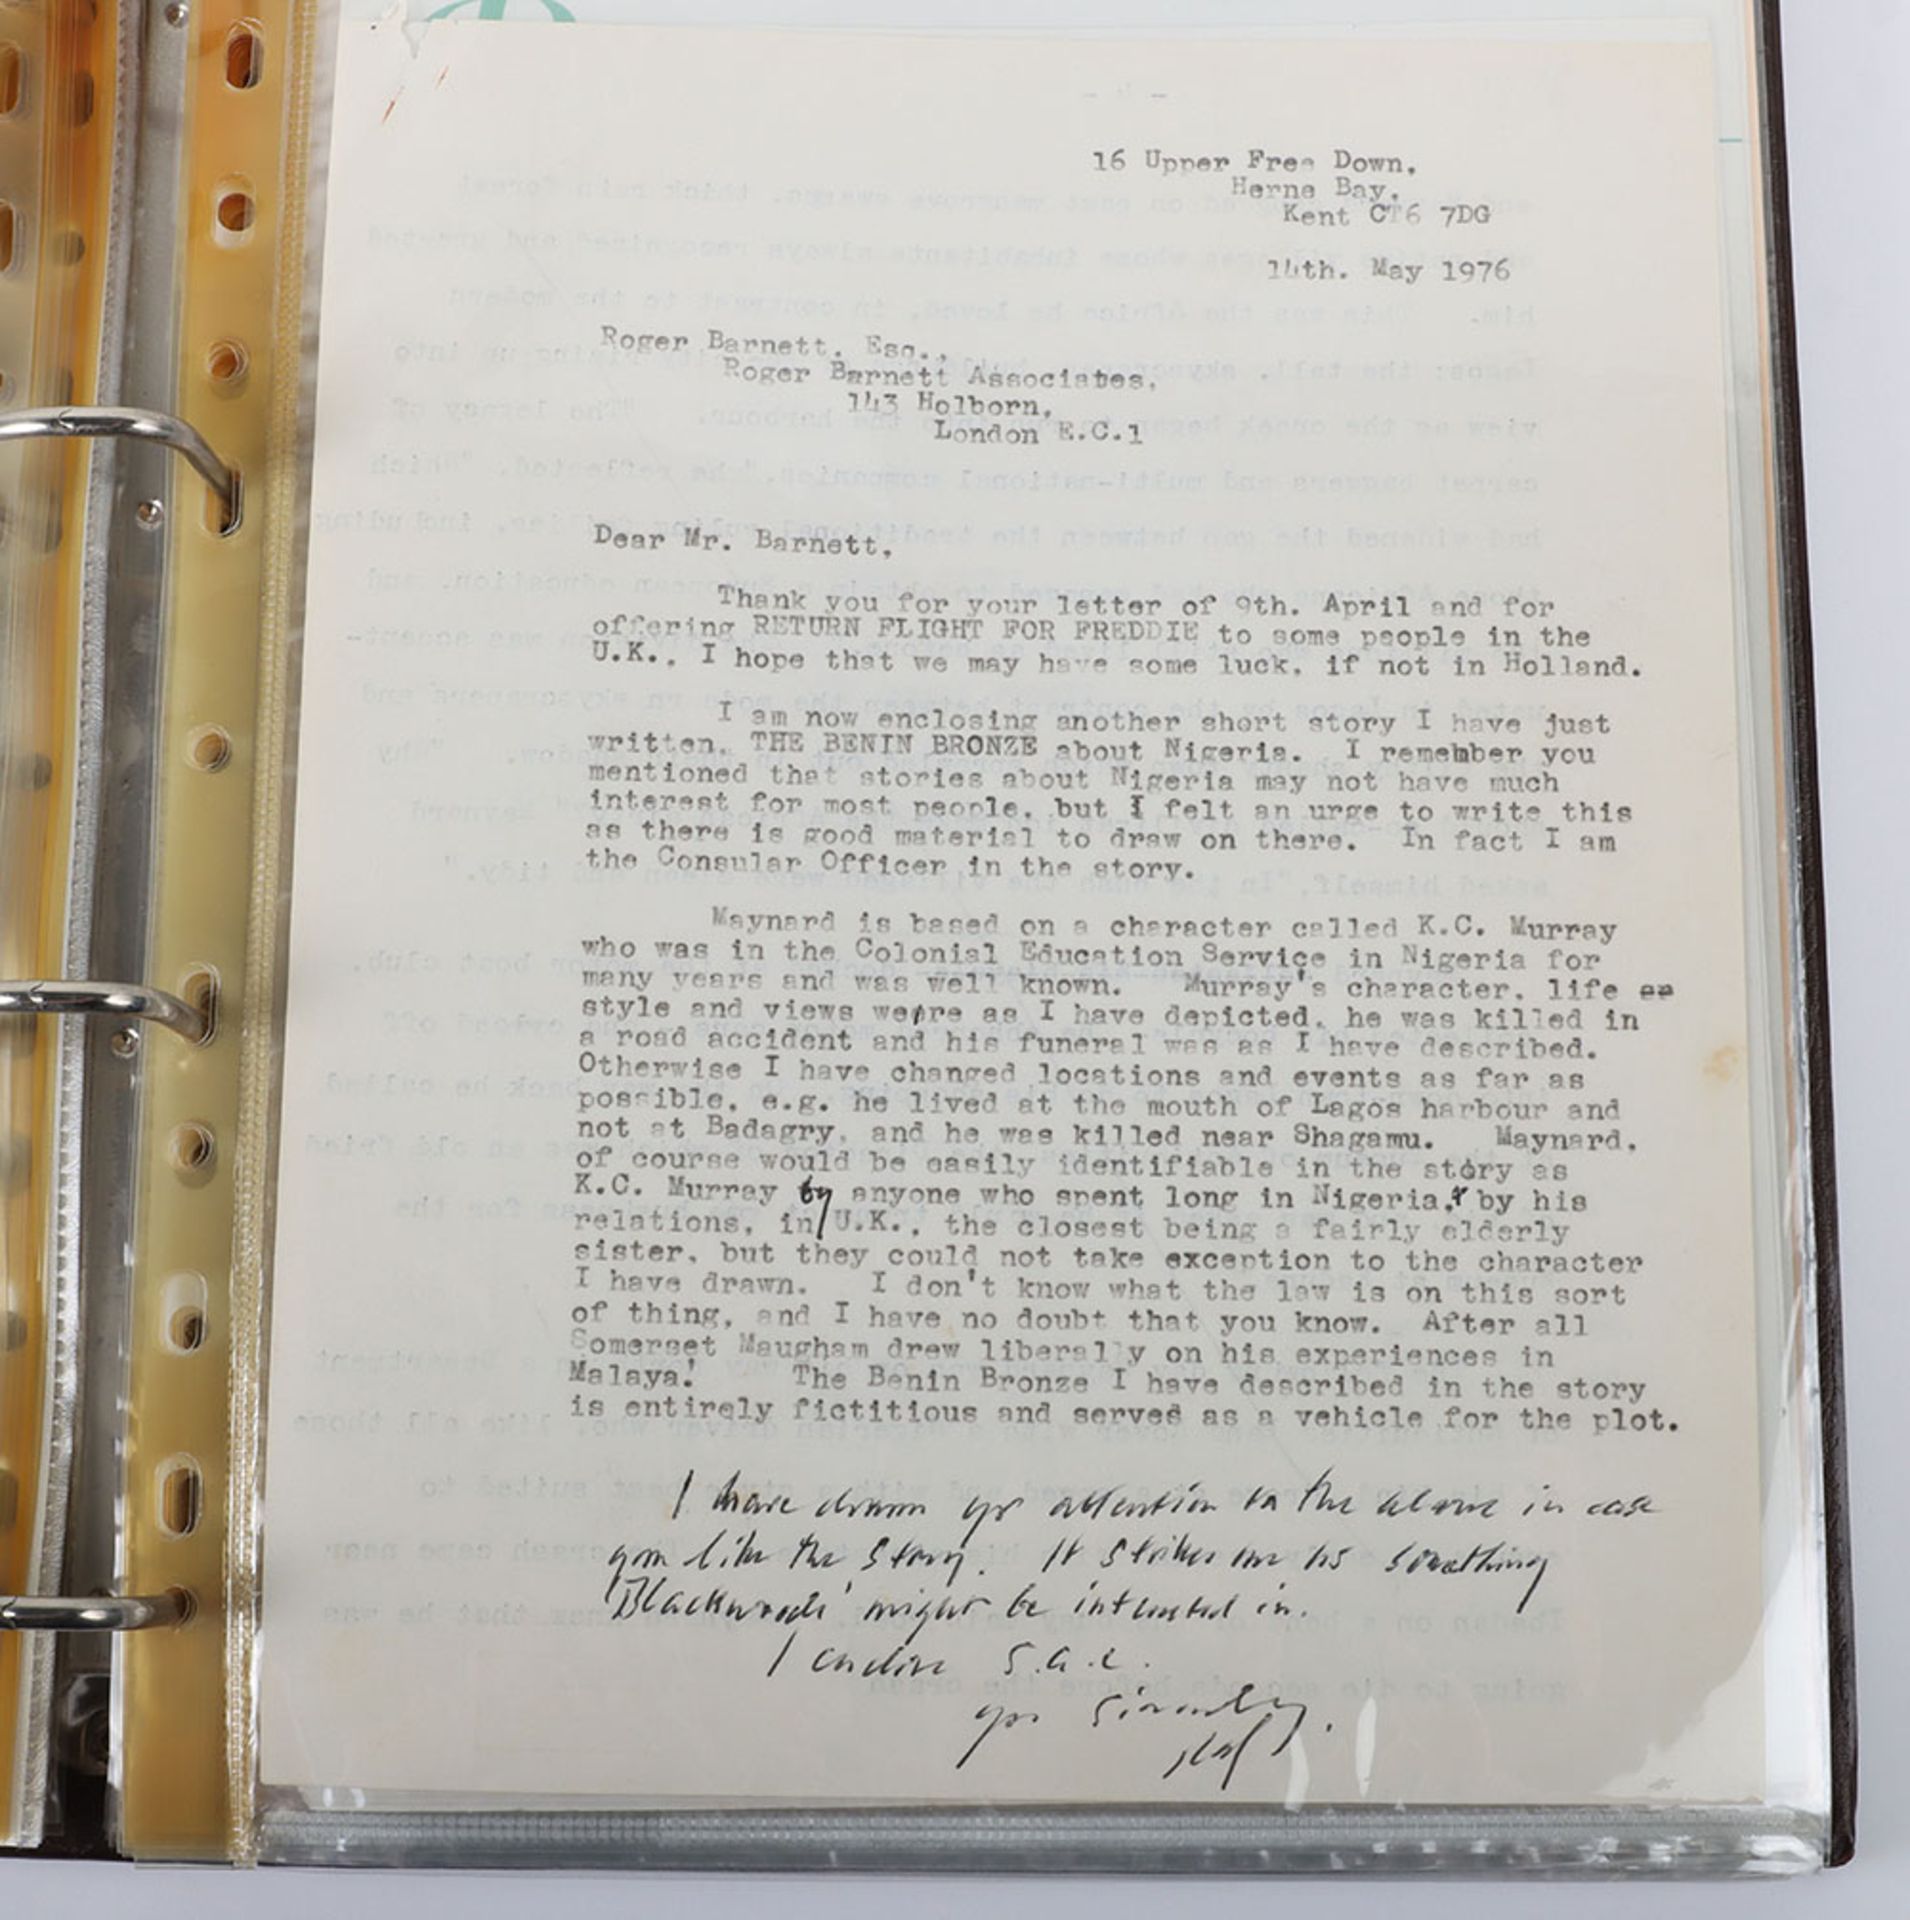 16 Upper Free Down,
Herne Bay,
Kent CT6 7DG
14th. May 1976
Roger Barnett, Esq.,
Roger Barnett Associates,
143 Holborn,
London E.C.1
Dear Mr. Barnett,
Thank you for your letter of 9th. April and for
offering RETURN FLIGHT FOR FREDDIE to some people in the
U.K.. I hope that we may have some luck, if not in Holland.
I am now enclosing another short story I have just
written, THE BENIN BRONZE about Nigeria. I remember you
mentioned that stories about Nigeria may not have much
interest for most people, but I felt an urge to write this
as there is good material to draw on there. In fact I am
the Consular Officer in the story.
Maynard is based on a character called K.C. Murray
who was in the Colonial Education Service in Nigeria for
many years and was well known. Murray's character, life
style and views were as I have depicted, he was killed in
a road accident and his funeral was as I have described.
Otherwise I have changed locations and events as far as
possible, e.g. he lived at the mouth of Lagos harbour and
not at Badagry, and he was killed near Shagamu. Maynard,
of course would be easily identifiable in the story as
K.C. Murray by anyone who spent long in Nigeria, & by his
relations, in U.K., the closest being a fairly elderly
sister, but they could not take exception to the character
I have drawn. I don't know what the law is on this sort
of thing, and I have no doubt that you know. After all
Somerset Maugham drew liberally on his experiences in
Malaya! The Benin Bronze I have described in the story
is entirely fictitious and served as a vehicle for the plot.
I have drawn yr attention to the above in case
you like the story. It strikes me as something
'Blackwoods' might be interested in.
I enclose s.a.e.
yrs sincerely,